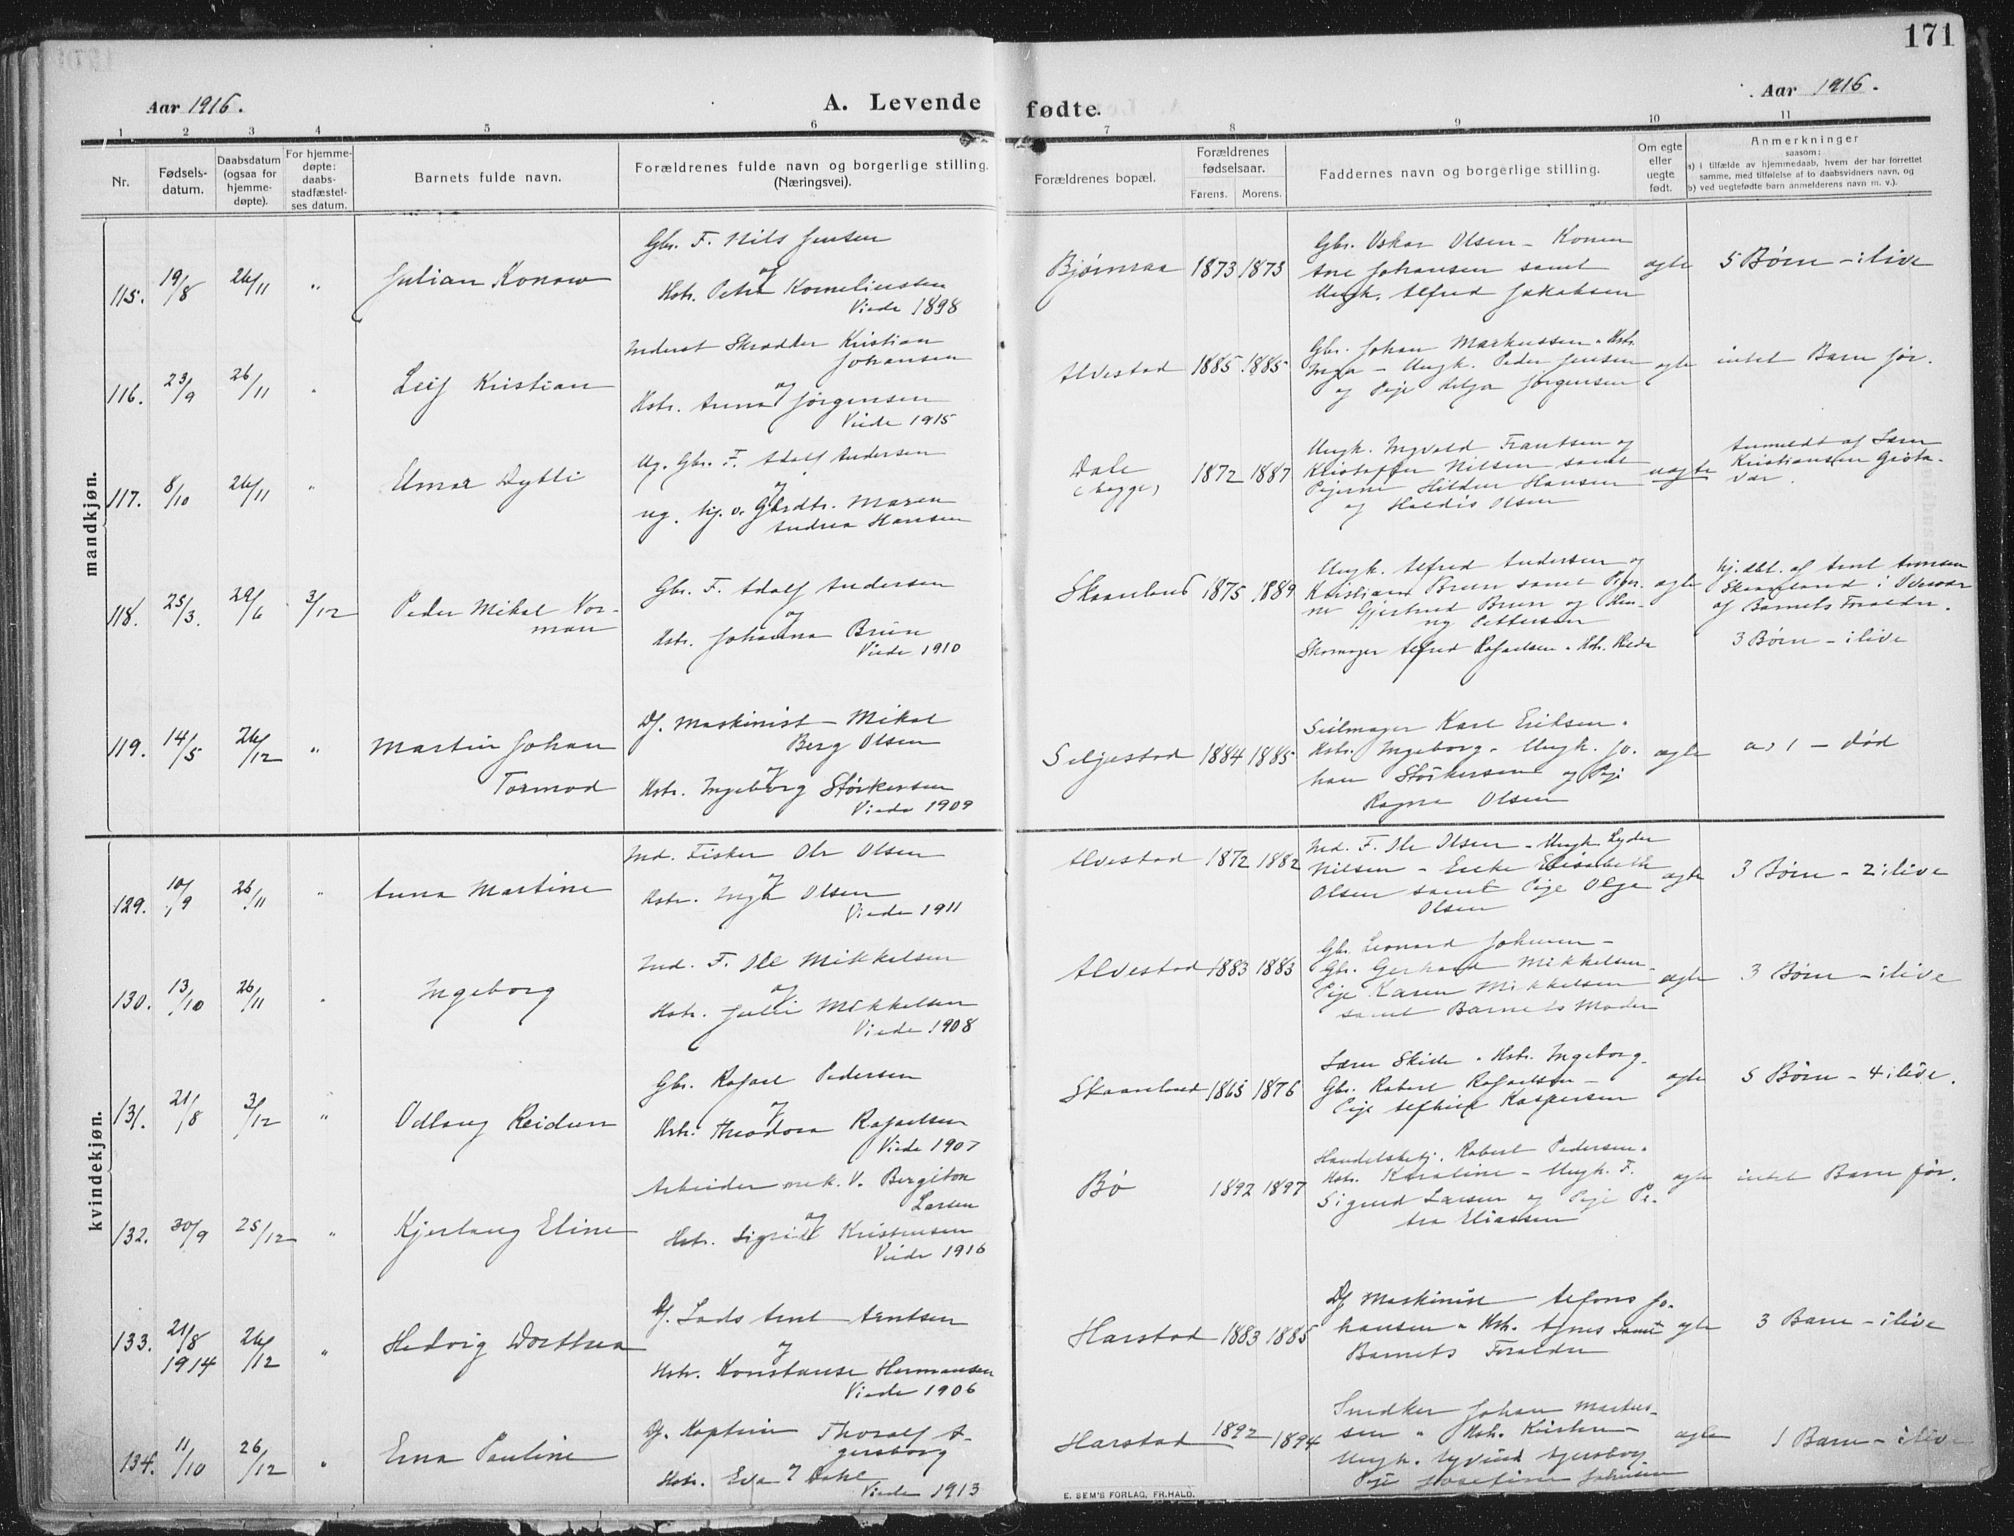 171
Aar 1916.
A. Levende fødte.
Aar 1916.
1 2 3 4 5 6 7 8 9 10 11
Nr.
Fødsels-
datum.
Daabsdatum
(ogsaa for
hjemme-
døpte).
For hjemme-
døpte:
daabs-
stadfæstel-
ses datum.
Barnets fulde navn.
Forældrenes fulde navn og borgerlige stilling.
(Næringsvei).
Forældrenes bopæl.
Forældrenes
fødselsaar.
Farens. Morens.
Faddernes navn og borgerlige stilling.
Om egte
eller
uegte
født.
Anmerkninger
saasom:
a) i tilfælde av hjemmedaab, hvem der har forrettet
samme, med tilføielse af to daabsvidners navn, og
b) ved uegtefødte barn anmelderens navn m. v.).
mandkjøn.
115. 19/8 26/11 " Julian Konow
Gbr. F. Nils Jensen
og
Hstr. Petra Korneliussen
Viede 1898
Bjørnraa 1873 1873
Gbr. Oskar Olsen - Konen
Ane Johansen samt
Ungk. Alfred Jakobsen
ægte 5 Børn - ilive
116. 23/9 26/11 " Leif Kristian
Inderst Skrædder Kristian
Johansen
og
Hstr. Anna Jørgensen
Viede 1915
Alvestad 1885 1885
Gbr. Johan Markussen, Hstr.
Inga - Ungk. Peder Jensen
og Pije Helga Jørgensen
ægte intet Barn før.
117. 8/10 26/11 " Elmar Dybli
Ug. Gbr. F. Adolf Andersen
og
ug. Gårdtr. Maren
Andrea Hansen
Dale
(begge) 1872 1887
Ungk. Ingvald Frantsen og
Kristoffer Nilsen samt
Pijerne Hildur Hansen
og Haldis Olsen
uægte
Anmeldt af Lærer
Kristiansen Grøta-
vær.
118. 25/3. 29/6 3/12 Peder Mikal Nor-
man
Gbr. F. Adolf Andersen
og
Hstr. Johanna Brun
Viede 1910
Skaanland 1875 1889
Ungk. Alfred Andersen og
Kristian Brun samt Piger-
ne Gjertrud Brun og Hen-
ny Pettersen
Skomager Alfred Rafaelsen, Hstr.
ægte
hj. dbt. af Arnt Arnesen
Skaanland i Overvær
af Barnets Forældre.
3 Børn - ilive
119. 14/5 26/12 " Martin Johan
Tormod
Df. Maskinist - Mikal
Berg Olsen
og
Hstr. Ingeborg Størkersen
Viede 1909
Seljestad 1884 1885
Seilmager Karl Eriksen,
Hstr. Ingeborg - Ungk. Jo-
han Størkersen og Pije
Ragna Olsen
ægte 1 - død
kvindekjøn.
129. 10/9 26/11 " Anna Martine
Ind. Fisker Ole Olsen
og
Hstr. Inga Olsen
Viede 1911
Alvestad 1872 1882
Ind. F. Ole Olsen - Ungk. Lyder
Nilsen - Enke Elisabeth
Olsen samt Pije Olga
Olsen
ægte 3 Børn - 2 ilive
130. 13/10 26/11 " Ingeborg
Ind. F. Ole Mikkelsen
og
Hstr. Julie Mikkelsen
Viede 1908
Alvestad 1883 1883
Gbr. Leonard Johnsen -
Gbr. Gerhard Mikkelsen -
Pije Karen Mikkelsen
samt Barnets Moder
ægte 3 Børn - ilive
131. 21/8 3/12 " Odlaug Reidun
Gbr. Rafael Pedersen
og
Hstr. Theodora Rafaelsen
Viede 1907
Skaanland 1865 1876
Lærer Skide, Hstr. Ingeborg -
Gbr. Robert Rafaelsen -
Pije Kaspersen
ægte 5 Børn - 4 ilive.
132. 30/9 25/12 " Kjerlaug Eline
Arbeider mek. V. Bergiton
Larsen
og
Hstr. Sigrid Kristensen
Viede 1916
Bø 1892 1897
Handelsbetj. Robert Pedersen,
Hstr. Karoline - Ungk. F.
Sigurd Larsen og Pije Pe-
tra Eliassen
ægte intet Barn før.
133. 21/8
1914 26/12 " Hedvig Dorthea
Df. Lods Arnt Arntsen
og
Hstr. Konstanse Hermansen
Viede 1906
Harstad 1883 1885
Df Maskinist Alfons Jo-
hansen, Hstr. Agnes samt
Barnets Forældre
ægte 3 Barn - ilive
134. 11/10 26/12 " Erna Pauline
Df. Kaptein Thoralf A-
gersborg
og
Hstr. Eva Dahl
Viede 1913
Harstad 1892 1894
Snedker Johan Martens-
sen, Hstr. Kirsten -
Ungk. Eyvind Agersborg
Pije Josefine Johnsen
ægte 1 Barn - ilive
E. SEM'S FORLAG, FR.HALD.